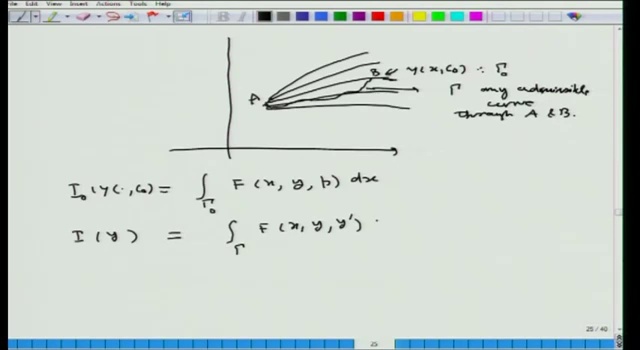 Edit View Insert Actions Tools Help
A
B y(x, C₀) : Γ₀
Γ any admissible
curve
through A & B.
I₀(y(·, C₀) = ∫_Γ₀ F(x, y, p) dx
I(y) = ∫_Γ F(x, y, y')
25 / 40
25